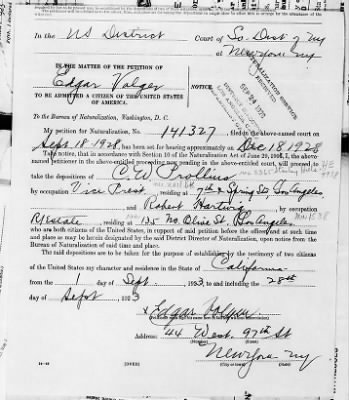 In the US District Court of So. Dist of Ny
at New York Ny
IN THE MATTER OF THE PETITION OF
Edgar Valger
TO BE ADMITTED A CITIZEN OF THE UNITED STATES
OF AMERICA.
NOTICE
To the Bureau of Naturalization, Washington, D. C.
My petition for Naturalization, No. 141327, filed in the above-named court on
Sept. 18 1928, has been set for hearing approximately on Dec 18 1928
Take notice, that in accordance with Section 10 of the Naturalization Act of June 29, 1906, I, the above-
named petitioner in the above-entitled proceeding now pending in the above-entitled court, will proceed to
take the depositions of C W
by occupation Vice Prest, residing at 7th & Spring St, Los Angeles
and Robert Hartwig, by occupation
R/estate, residing at 135 No. St, Los Angeles
who are both citizens of the United States, in support of said petition before the officer and at such time
and place as may be herein designated by the said District Director of Naturalization, upon notice from the
Bureau of Naturalization of said time and place.
The said depositions are to be taken for the purpose of establishing by the testimony of two citizens
of the United States my character and residence in the State of California
from the 1 day of Sept., 1923 to and including the 28th
day of Sept, 1923
x Edgar Valger
Address: 44 West. 97th St
(Number) (Street)
New York Ny
(City or town) (State)